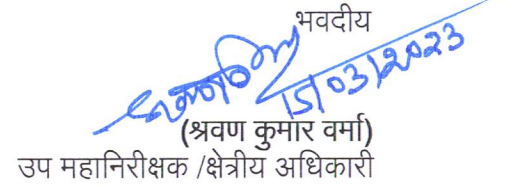 भवदीय
15/03/2023
(श्रवण कुमार वर्मा)
उप महानिरीक्षक /क्षेत्रीय अधिकारी